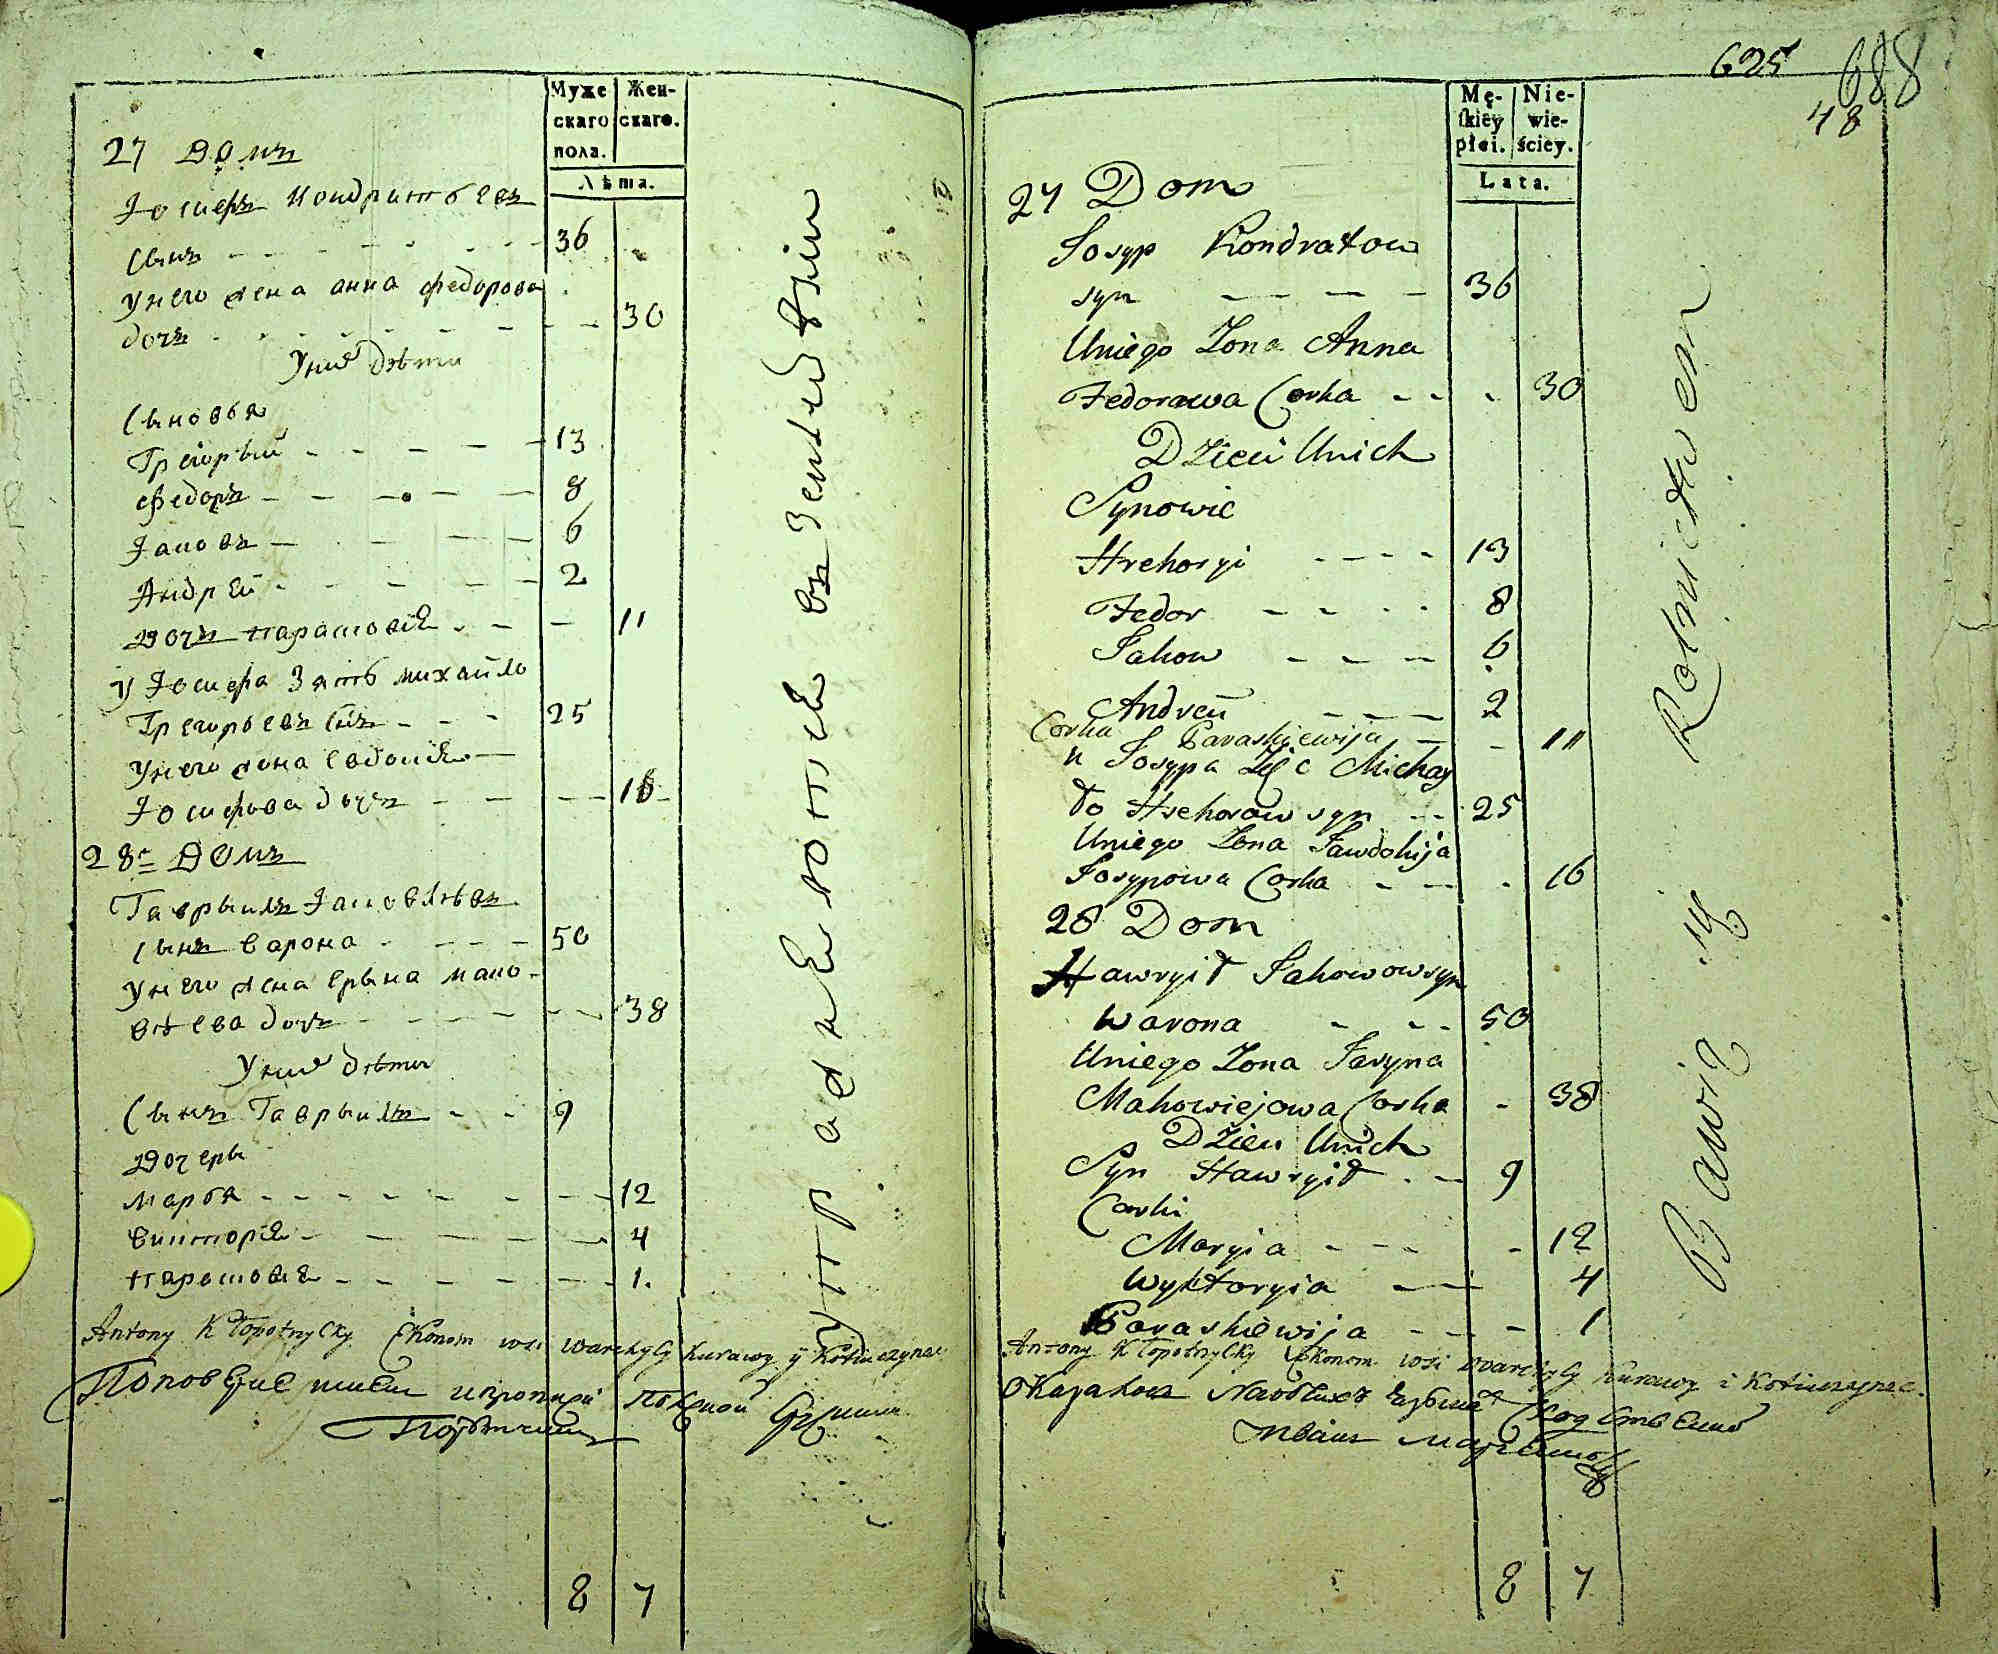 Муже
скаго
пола.
Жен-
скаго.
Лѣта.
27 Домъ
Іосиеръ Кондратьевъ
сынъ - - - - - - 36
У него жена анна федорова
дочъ - - - - - - 30
У них дѣти
Сыновья
Грегорый - - - - 13
Федоръ - - - - 8
Іаковъ - - - - 6
Андрей - - - - 2
Дочъ параскевія - - - 11
У Іосифа Зять михайло
Грегорьевъ снъ - - - 25
У него жена Евдокія
Іосифова дочъ - - - 16
28й Домъ
Гаврыилъ Іаковлѣвъ
сынъ варона - - - - 50
У него жена ерына мако-
вѣева дочъ - - - - - 38
У них дѣти
Сынъ Гаврыилъ - - 9
Дочеры
Марья - - - - - - 12
викторія - - - - - - 4
параскевія - - - - - - 1.
упражнеются въ земледѣліи
Antony Kłopotnycky Ekonom wsi warchyly kurawy y Kotiuczyniec
8 7
625
688
48
Mę-
skiéy
płci.
Nie-
wie-
ściey.
Lata.
27 Dom
Josyp Kondratow
syn - - - - 36
Uniego Zona Anna
Fedorawa Corka - - - 30
Dzieci Unich
Synowie
Hrehoryi - - - - 13
Fedor - - - - 8
Jakow - - - 6
Andreii - - - 2
Corka Paraskiewija - - 11
u Josypa Zięc Michay
ło Hrehorow syn - - 25
Uniego Zona Jawdokija
Josypowa Corka - - - 16
28 Dom
Hawryił Jakowowsyn
warona - - - 50
Uniego Zona Jaryna
Makowiejowa Corka - 38
Dzieci Unich
Syn Hawryił - - 9
Corki
Maryia - - - - 12
Wyktoryia - - 4
Paraskiewija - - - 1
Bawią się Rolnictwem
Antony Kłopotnycky Ekonom wsi warchyly kurawy i Kotiuczyniec.
8 7